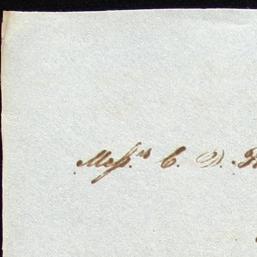 Mess.rs C. D.